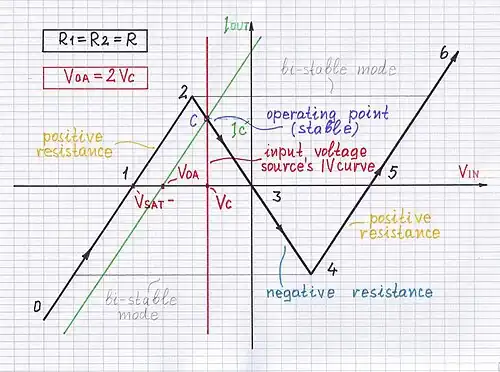 R1=R2=R
IOUT
VOA=2VC
bi-stable mode
6
2
C
IC
operating point
(stable)
positive
resistance
input voltage
source's IV curve
1
VOA
5
VIN
VSAT-
VC
3
positive
resistance
4
0
bi-stable
mode
negative resistance